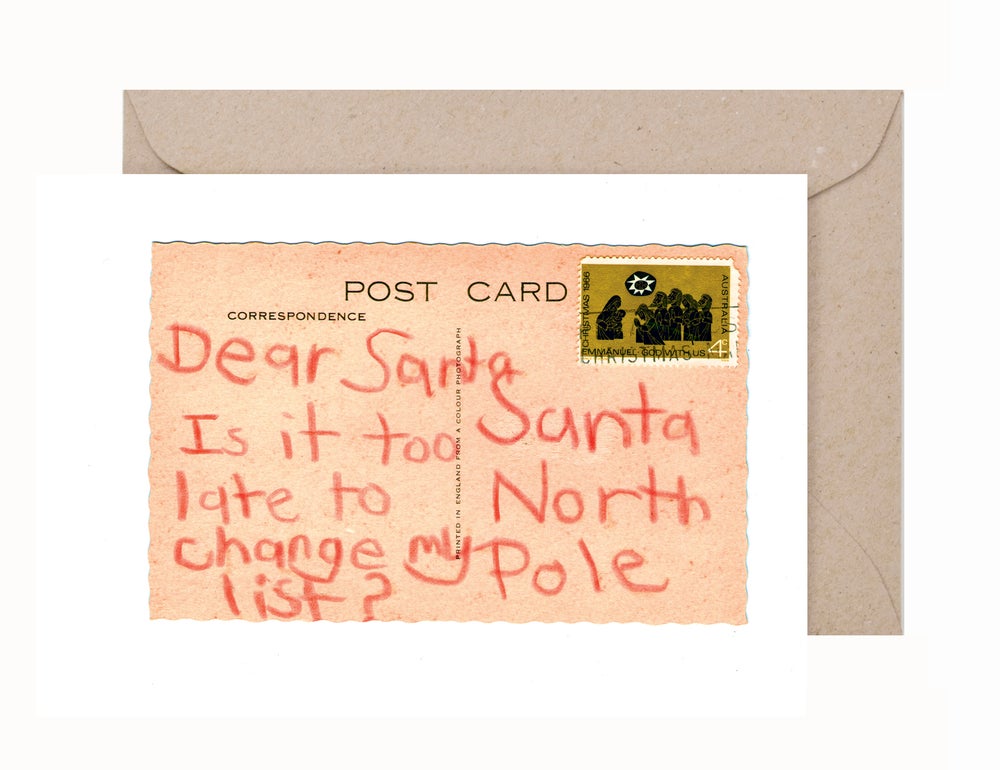 POST CARD
CORRESPONDENCE
Dear Santa
Is it too
late to
change my
list?
PRINTED IN ENGLAND FROM A COLOUR PHOTOGRAPH
Santa
North
Pole
CHRISTMAS 1966
AUSTRALIA
EMMANUEL GOD WITH US
4c
CHRISTMAS